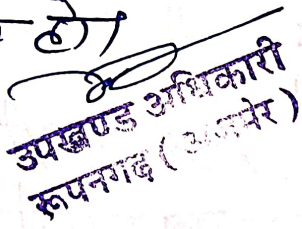 हो।
उपखण्ड अधिकारी
रूपनगढ़ (अजमेर)